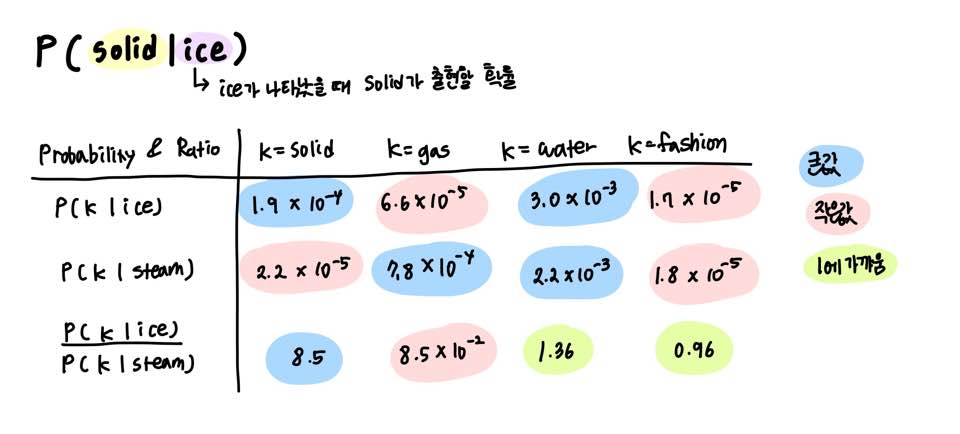 P(solid|ice)
↳ ice가 나타났을 때 Solid가 출현할 확률
Probability & Ratio k=solid k=gas k=water k=fashion
P(k|ice) 1.9 × 10⁻⁴ 6.6 × 10⁻⁵ 3.0 × 10⁻³ 1.7 × 10⁻⁵
P(k|steam) 2.2 × 10⁻⁵ 7.8 × 10⁻⁴ 2.2 × 10⁻³ 1.8 × 10⁻⁵
P(k|ice)
P(k|steam) 8.5 8.5 × 10⁻² 1.36 0.96
큰값
작은값
1에 가까움